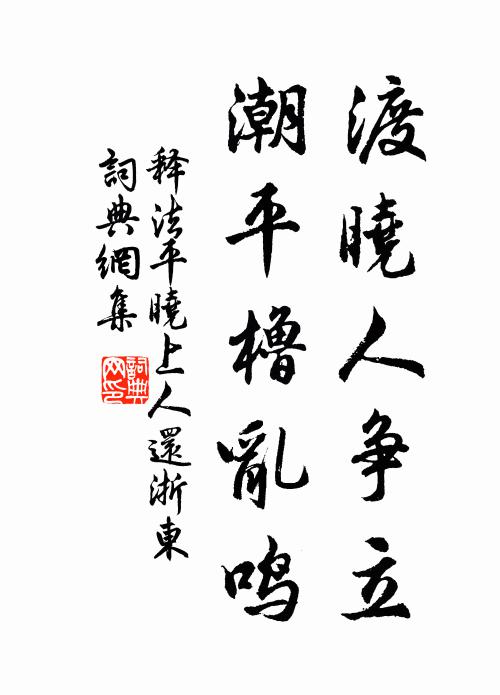 渡曉人争立
潮平櫓亂鳴
释法平曉上人還浙東
詞典網集
詞典网印